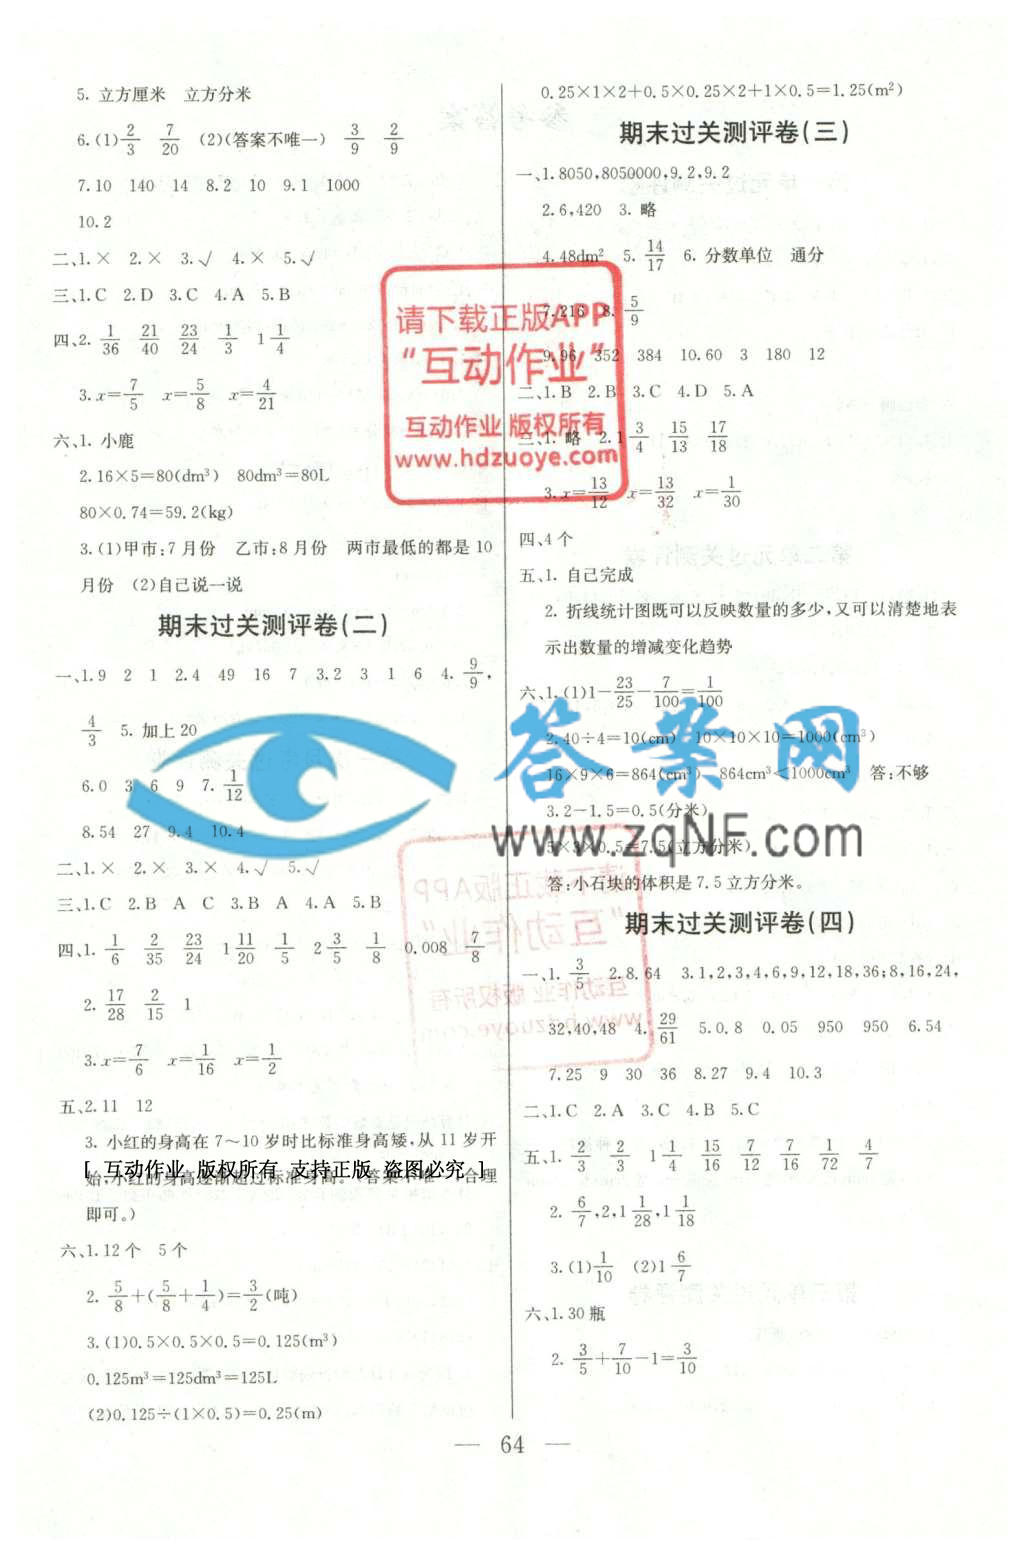 5. 立方厘米 立方分米
6.(1)2/3 7/20 (2)(答案不唯一) 3/9 2/9
7.10 140 14 8.2 10 9.1 1000
10.2
二、1.× 2.× 3.√ 4.× 5.√
三、1.C 2.D 3.C 4.A 5.B
四、2. 1/36 21/40 23/24 1/3 1 1/4
3.x=7/5 x=5/8 x=4/21
六、1. 小鹿
2.16×5=80(dm³) 80dm³=80L
80×0.74=59.2(kg)
3.(1)甲市:7月份 乙市:8月份 两市最低的都是10
月份 (2)自己说一说
期末过关测评卷(二)
一、1.9 2 1 2.4 49 16 7 3.2 3 1 6 4. 9/9,
4/3 5. 加上20
6.0 3 6 9 7. 1/12
8.54 27 9.4 10.4
二、1.× 2.× 3.× 4.√ 5.√
三、1.C 2.B A C 3.B 4.A 5.B
四、1. 1/6 2/35 23/24 1 11/20 1/5 2 3/5 1/8 0.008 7/8
2. 17/28 2/15 1
3.x=7/6 x=1/16 x=1/2
五、2.11 12
3. 小红的身高在7～10岁时比标准身高矮,从11岁开
[ 互动作业 版权所有 支持正版 盗图必究 ]
始,小红的身高逐渐超过标准身高。(答案不唯一,合理
即可。)
六、1.12个 5个
2. 5/8+(5/8+1/4)=3/2(吨)
3.(1)0.5×0.5×0.5=0.125(m³)
0.125m³=125dm³=125L
(2)0.125÷(1×0.5)=0.25(m)
0.25×1×2+0.5×0.25×2+1×0.5=1.25(m²)
期末过关测评卷(三)
一、1.8050,8050000,9.2,9.2
2.6,420 3. 略
4.48dm² 5. 14/17 6. 分数单位 通分
7.216 8. 5/9
9.96 352 384 10.60 3 180 12
二、1.B 2.B 3.C 4.D 5.A
三、1. 略 2.1 3/4 15/13 17/18
3.x=13/12 x=13/32 x=1/30
四、4个
五、1. 自己完成
2. 折线统计图既可以反映数量的多少,又可以清楚地表
示出数量的增减变化趋势
六、1.(1)1-23/25-7/100=1/100
2.40÷4=10(cm) 10×10×10=1000(cm³)
16×9×6=864(cm³) 864cm³<1000cm³ 答:不够
3.2-1.5=0.5(分米)
5×3×0.5=7.5(立方分米)
答:小石块的体积是7.5立方分米。
期末过关测评卷(四)
一、1. 3/5 2.8.64 3.1,2,3,4,6,9,12,18,36;8,16,24,
32,40,48 4. 29/61 5.0.8 0.05 950 950 6.54
7.25 9 30 36 8.27 9.4 10.3
二、1.C 2.A 3.C 4.B 5.C
五、1. 2/3 2/3 1 1/4 15/16 7/72 7/11 1/2 4/7
2. 6/7,2,1 1/28,1 1/18
3.(1)1/10 (2)1 6/7
六、1.30瓶
2. 3/5+7/10-1=3/10
— 64 —
请下载正版APP
“互动作业”
互动作业 版权所有
www.hdzuoye.com
答案网
www.zqNF.com
请下载正版APP
“互动作业”
互动作业 版权所有
www.hdzuoye.com